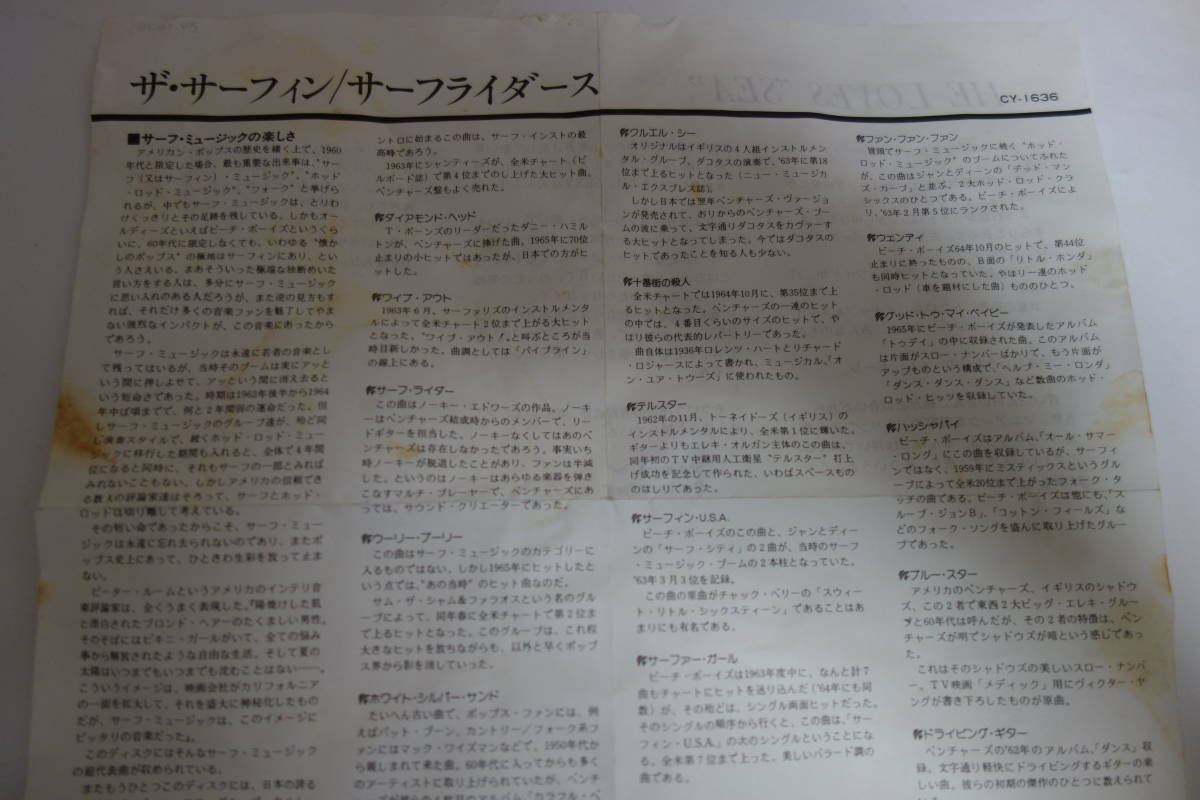 ザ・サーフィン/サーフライダース
CY-1636
■サーフ・ミュージックの楽しさ
アメリカン・ポップスの歴史を繙く上で、1960
年代と限定した場合、最も重要な出来事は、"サー
フ(又はサーフィン)・ミュージック"、"ホッド
・ロッド・ミュージック"、"フォーク"と挙げら
れるが、中でもサーフ・ミュージックは、とりわ
けくっきりとその足跡を残している。しかもオー
ルディーズといえばビーチ・ボーイズというくら
いに、60年代に限定しなくても、いわゆる"懐か
しのポップス"の極地はサーフィンにあり、とい
う人さえいる。まあそういった極端な独断めいた
言い方をする人は、多分にサーフ・ミュージック
に思い入れのある人だろうが、また逆の見方もす
れば、それだけ多くの音楽ファンを魅了してやま
ない強烈なインパクトが、この音楽にあったから
であろう。
サーフ・ミュージックは永遠に若者の音楽とし
て残ってはいるが、当時そのブームは実にアッと
いう間に押しよせて、アッという間に消え去ると
いう短命さであった。時期は1962年後半から1964
年中ば頃までで、何と2年間弱の運命だった。但
しサーフ・ミュージックのグループ達が、殆ど同
じ演奏スタイルで、続くホッド・ロッド・ミュー
ジックに移行した期間も入れると、全体で4年間
位になると同時に、それもサーフの一部とみれば
みれないこともない。しかしアメリカの信頼でき
る数人の評論家達はそろって、サーフとホッド・
ロッドは切り離して考えている。
その短い命であったからこそ、サーフ・ミュー
ジックは永遠に忘れ去られないのであり、またポ
ップス史上にあって、ひときわ生彩を放って止ま
ない。
ピーター・ルームというアメリカのインテリ音
楽評論家は、全くうまく表現した。『陽焼けした肌
と漂白されたブロンド・ヘアーのたくましい男性。
そのそばにはビキニ・ガールがいて、全ての悩み
事から解放されたような自由な生活。そして夏の
太陽はいつまでもいつまでも沈むことはない──。
こういうイメージは、映画会社がカリフォルニア
の一面を拡大して、それを盛大に神秘化したもの
だが、サーフ・ミュージックは、このイメージに
ピッタリの音楽だった』。
このディスクにはそんなサーフ・ミュージック
の総代表曲が収められている。
またもうひとつこのディスクには、日本の誇る
ントロに始まるこの曲は、サーフ・インストの最
高峰であろう。
1963年にシャンティーズが、全米チャート(ビ
ルボード誌)で第4位までのし上げた大ヒット曲。
ベンチャーズ盤もよく売れた。
ダイアモンド・ヘッド
T・ボーンズのリーダーだったダニー・ハミル
トンが、ベンチャーズに捧げた曲。1965年に70位
止まりの小ヒットではあったが、日本での方がヒ
ットした。
ワイプ・アウト
1963年6月、サーファリズのインストルメンタ
ルによって全米チャート2位まで上がる大ヒット
となった。"ワイプ・アウト!"と叫ぶところが当
時目新しかった。曲調としては「パイプライン」
の線上にある。
サーフ・ライダー
この曲はノーキー・エドワーズの作品。ノーキ
ーはベンチャーズ結成時からのメンバーで、リー
ドギターを担当した。ノーキーなくしてはあのベ
ンチャーズは存在しなかったであろう。事実いち
時ノーキーが脱退したことがあり、ファンは半減
した。というのはノーキーはあらゆる楽器を弾き
こなすマルチ・プレーヤーで、ベンチャーズにあ
っては、サウンド・クリエーターであった。
ウーリー・ブーリー
この曲はサーフ・ミュージックのカテゴリーに
入るものではない。しかし1965年にヒットしたと
いう点では、"あの当時"のヒット曲なのだ。
サム・ザ・シャム&ファラオスという名のグル
ープによって、同年春に全米チャートで第2位ま
で上るヒットとなった。このグループは、これ程
大きなヒットを放ちながらも、以外と早くポップ
ス界から影を消していった。
ホワイト・シルバー・サンド
たいへん古い曲で、ポップス・ファンには、例
えばパット・ブーン、カントリー/フォーク系フ
ァンにはマック・ワイズマンなどで、1950年代か
ら親しまれて来た曲。60年代に入ってからも多く
のアーティストに取り上げられていたが、ベンチ
クルエル・シー
オリジナルはイギリスの4人組インストルメン
タル・グループ、ダコタスの演奏で、'63年に第18
位まで上るヒットとなった(ニュー・ミュージカ
ル・エクスプレス誌)。
しかし日本では翌年ベンチャーズ・ヴァージョ
ンが発売されて、おりからのベンチャーズ・ブー
ムの波に乗って、文字通りダコタスをカヴァーす
る大ヒットとなってしまった。今ではダコタスの
ヒットであったことを知る人も少ない。
十番街の殺人
全米チャートでは1964年10月に、第35位まで上
るヒットとなった。ベンチャーズの一連のヒット
の中では、4番目くらいのサイズのヒットで、や
はり彼らの代表的レパートリーであった。
曲自体は1936年ロレンツ・ハートとリチャード
・ロジャースによって書かれ、ミュージカル、「オ
ン・ユア・トウーズ」に使われたもの。
テルスター
1962年の11月、トーネイドーズ(イギリス)の
インストルメンタルにより、全米第1位に輝いた。
ギターよりもエレキ・オルガン主体のこの曲は、
同年初のTV中継用人工衛星"テルスター"打上
げ成功を記念して作られた、いわばスペースもの
のはしりであった。
サーフィン・U.S.A.
ビーチ・ボーイズのこの曲と、ジャンとディー
ンの「サーフ・シティ」の2曲が、当時のサーフ
・ミュージック・ブームの2本柱となっていた。
'63年3月3位を記録。
この曲の原曲がチャック・ベリーの「スウィー
ト・リトル・シックスティーン」であることはあ
まりにも有名である。
サーファー・ガール
ビーチ・ボーイズは1963年度中に、なんと計7
曲もチャートにヒットを送り込んだ('64年にも同
数)が、その殆どは、シングル両面ヒットだった。
そのシングルの順序から行くと、この曲は、「サー
フィン・U.S.A.」の次のシングルということにな
る。全米第7位まで上った。美しいバラード調の
曲である。
ファン・ファン・ファン
冒頭でサーフ・ミュージックに続く"ホッド・
ロッド・ミュージック"のブームについてふれた
が、この曲はジャンとディーンの「デッド・マン
ズ・カーブ」と並ぶ、2大ホッド・ロッド・クラ
シックスのひとつである。ビーチ・ボーイズによ
り、'63年2月第5位にランクされた。
ウェンディ
ビーチ・ボーイズ64年10月のヒットで、第44位
止まりに終ったものの、B面の「リトル・ホンダ」
も同時ヒットとなっていた。やはり一連のホッド
・ロッド(車を題材にした曲)もののひとつ。
グッド・トゥ・マイ・ベイビー
1965年にビーチ・ボーイズが発表したアルバム
「トゥディ」の中に収録された曲。このアルバム
は片面がスロー・ナンバーばかりで、もう片面が
アップものという構成で、「ヘルプ・ミー・ロンダ」
「ダンス・ダンス・ダンス」など数曲のホッド・
ロッド・ヒッツを収録していた。
ハッシャバイ
ビーチ・ボーイズはアルバム、「オール・サマー
・ロング」にこの曲を収録しているが、サーフィ
ンではなく、1959年にミスティックスというグル
ープによって全米20位まで上がったフォーク・タ
ッチの曲である。ビーチ・ボーイズは他にも、「ス
ループ・ジョンB」、「コットン・フィールズ」な
どのフォーク・ソングを盛んに取り上げたグルー
プであった。
ブルー・スター
アメリカのベンチャーズ、イギリスのシャドウ
ズ、この2者で東西2大ビッグ・エレキ・グルー
プと60年代は呼んだが、その2者の特徴は、ベン
チャーズが明でシャドウズが暗という感じであっ
た。
これはそのシャドウズの美しいスロー・ナンバ
ー。TV映画「メディック」用にヴィクター・ヤ
ングが書き下ろしたものが原曲。
ドライビング・ギター
ベンチャーズの'62年のアルバム、「ダンス」収
録。文字通り軽快にドライビングするギターの楽
しい曲。彼らの初期の傑作のひとつに数えられて